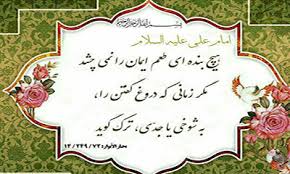 بسم الله الرحمن الرحیم
امام علی علیه السلام
هیچ بنده ای طعم ایمان را نمی چشد
مگر زمانی که دروغ گفتن را،
به شوخی یا جدی، ترک گوید
بحار الانوار، ۷۲ / ۲۴۹ / ۱۴